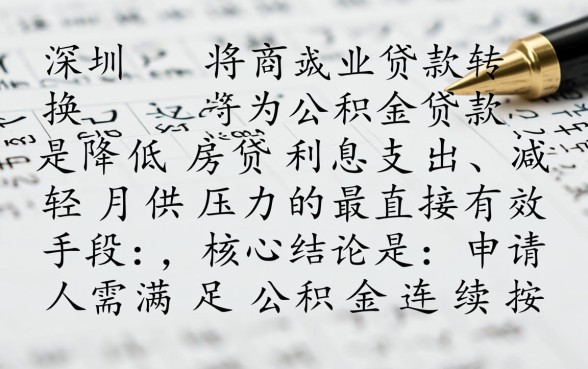 深圳 将商业贷款转
换 为公积金贷款
是降低 房贷 利息支出、减
轻 月供 压力的最直接有效
手段:，核心结论是：申请
人需满 足 公积金连续按